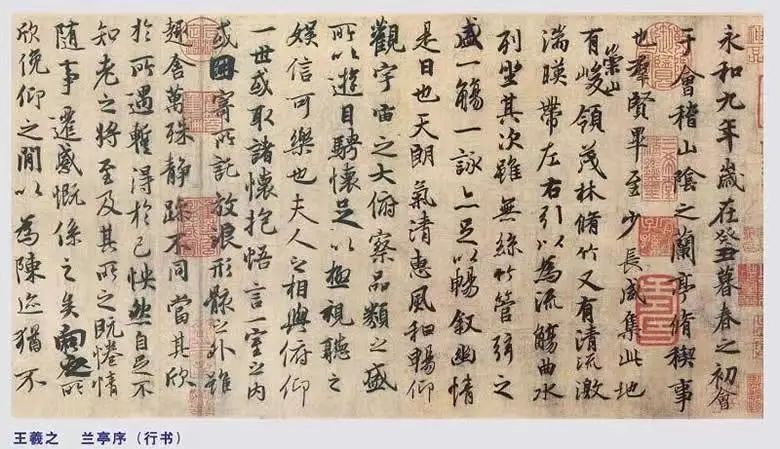 永和九年歲在癸丑暮春之初會
于會稽山陰之蘭亭脩稧事
也羣賢畢至少長咸集此地
有崇山峻領茂林脩竹又有清流激
湍暎帶左右引以為流觴曲水
列坐其次雖無絲竹管弦之
盛一觴一詠亦足以暢叙幽情
是日也天朗氣清惠風和暢仰
觀宇宙之大俯察品類之盛
所以遊目騁懷足以極視聽之
娛信可樂也夫人之相與俯仰
一世或取諸懷抱悟言一室之內
或因寄所託放浪形骸之外雖
趣舍萬殊靜躁不同當其欣
於所遇蹔得於己怏然自足不
知老之將至及其所之既惓情
隨事遷感慨係之矣向之所
欣俛仰之閒以為陳迹猶不
王羲之 兰亭序（行书）